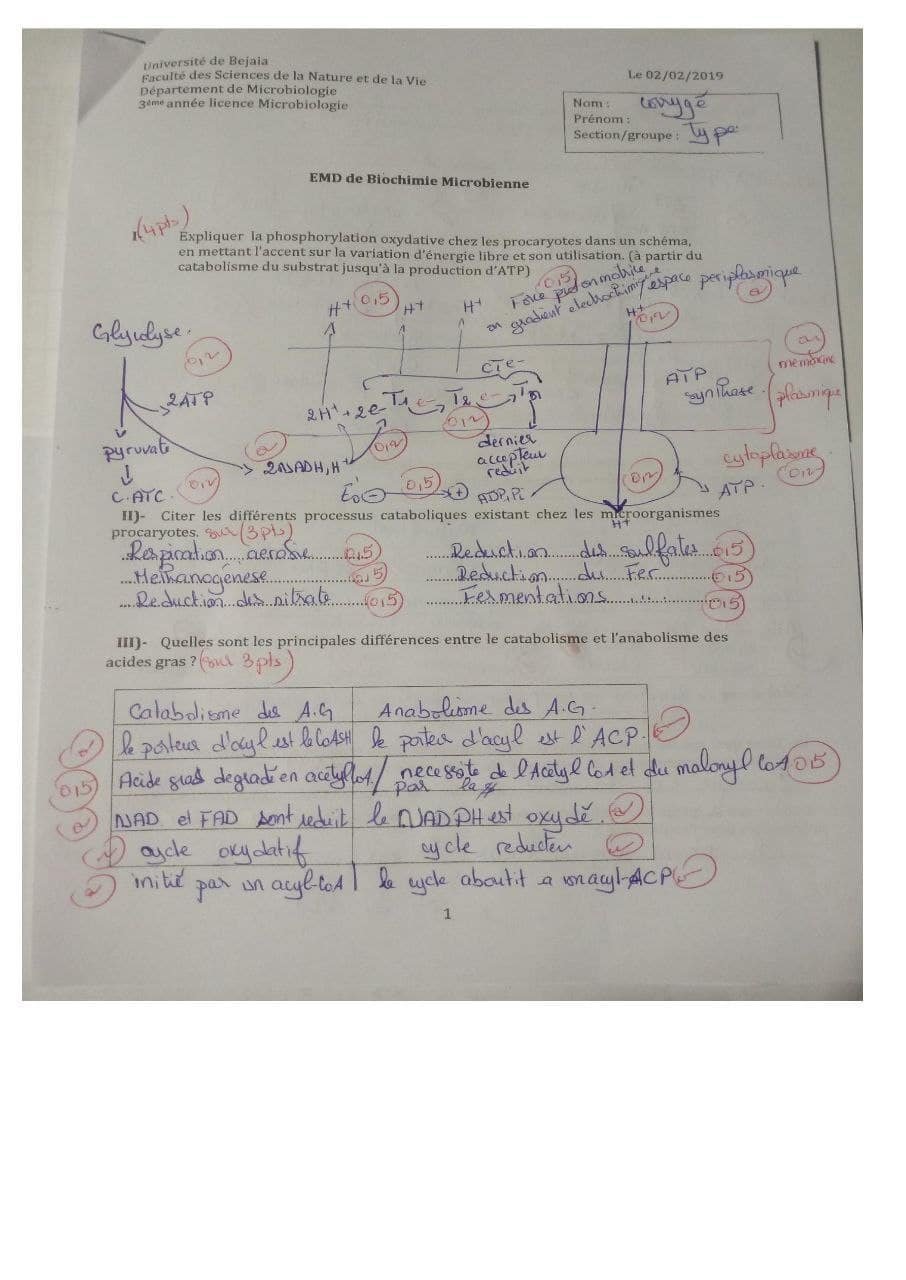 Université de Bejaia
Faculté des Sciences de la Nature et de la Vie
Département de Microbiologie
3ème année licence Microbiologie
Le 02/02/2019
Nom : corrygé
Prénom :
Section/groupe : Type
EMD de Biochimie Microbienne
I. (4pts) Expliquer la phosphorylation oxydative chez les procaryotes dans un schéma,
en mettant l'accent sur la variation d'énergie libre et son utilisation. (à partir du
catabolisme du substrat jusqu'à la production d'ATP)
H+ 0,5 H+ H+ Force protonmotrice 0,5
ou gradient electrochimique / espace periplasmique
H+ 0,2
Glycolyse.
0,2
CTe-
ATP
synthase.
membrane
plasmique
2ATP
2H+ + 2e- T1 e- T2 e- Tn
0,2
pyruvate
2NADH,H+
0,2
dernier
accepteur
reduit
cytoplasme
0,2
C.ATC. 0,2
E'o - 0,5 +
ADP,Pi
0,2
ATP.
H+
II)- Citer les différents processus cataboliques existant chez les microorganismes
procaryotes. sur (3pts)
..Respiration....aerobie.........0,5 ......Reduction......des sulfates..0,5
...Methanogénese.................0,5 ......Reduction......du Fer............0,5
....Reduction..des nitrate.......0,5 ......Fermentations..................0,5
III)- Quelles sont les principales différences entre le catabolisme et l'anabolisme des
acides gras ? (sur 3pts)
Catabolisme des A.G Anabolisme des A.G.
le porteur d'acyl est le CoASH le porteur d'acyl est l'ACP.
0,5 Acide gras degradé en acetylCoA / necessite de l'Acetyl CoA et du malonyl CoA 0,5
par la
NAD et FAD sont reduit le NADPH est oxydé.
cycle oxydatif cycle reducteu
initié par un acyl-CoA le cycle aboutit a un acyl-ACP
1